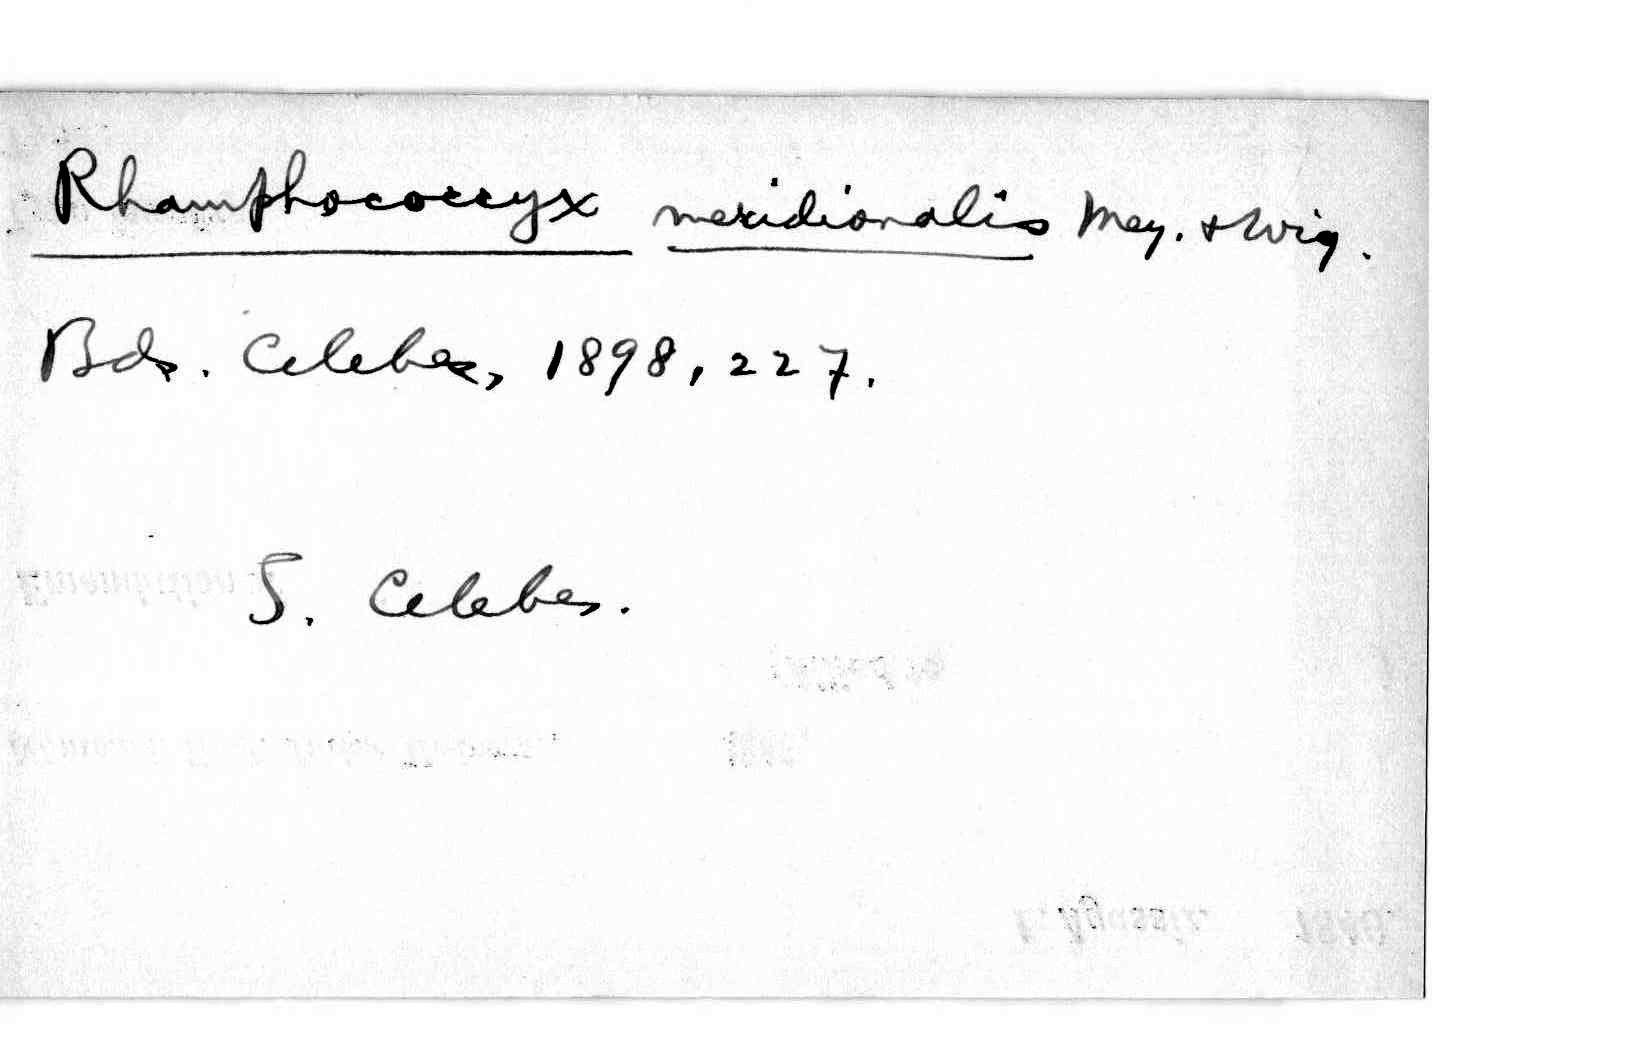 Rhamphococcyx meridionalis Mey. & Wig.
Bds. Celebes, 1898, 227.
S. Celebes.